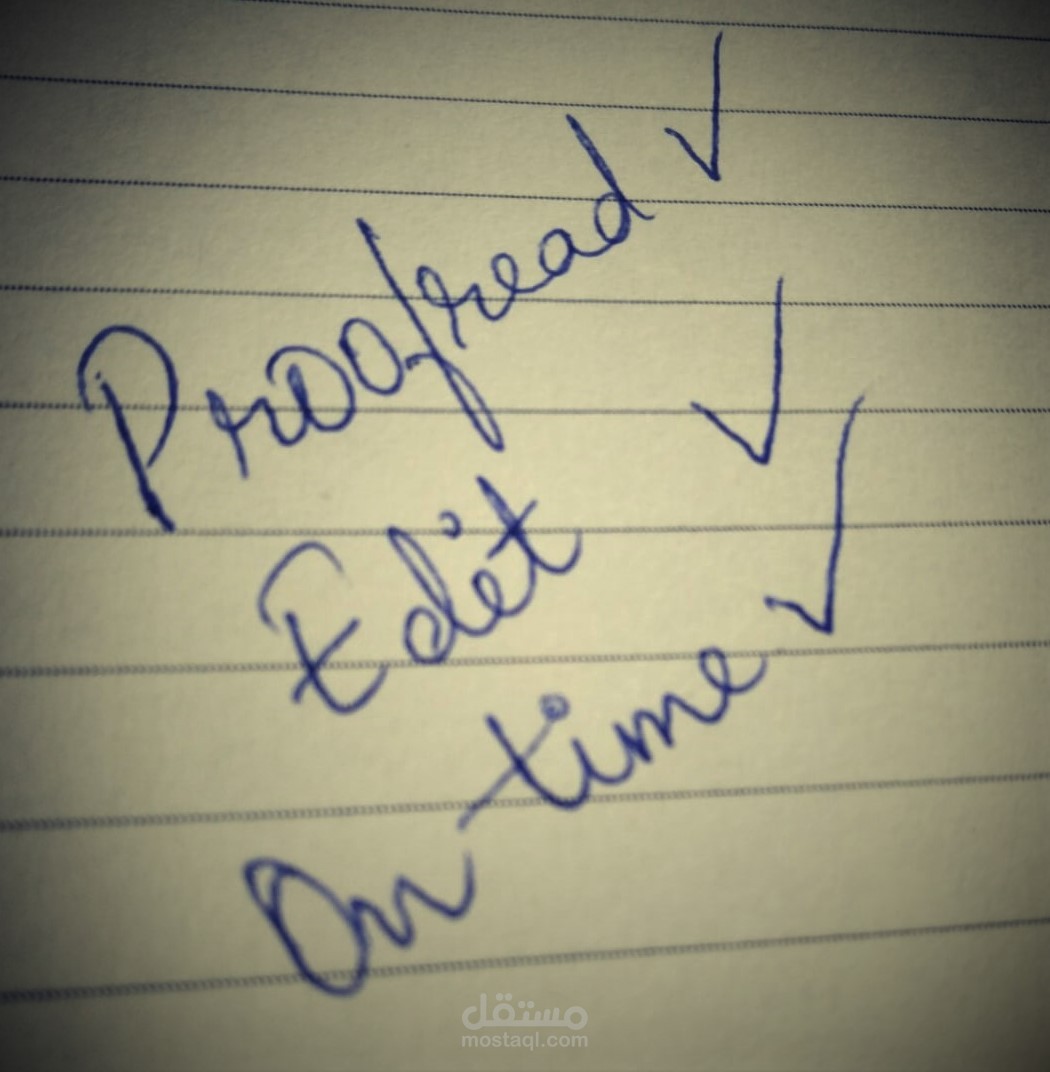 Proofread ✓
Edit ✓
On time ✓
مستقل
mostaql.com